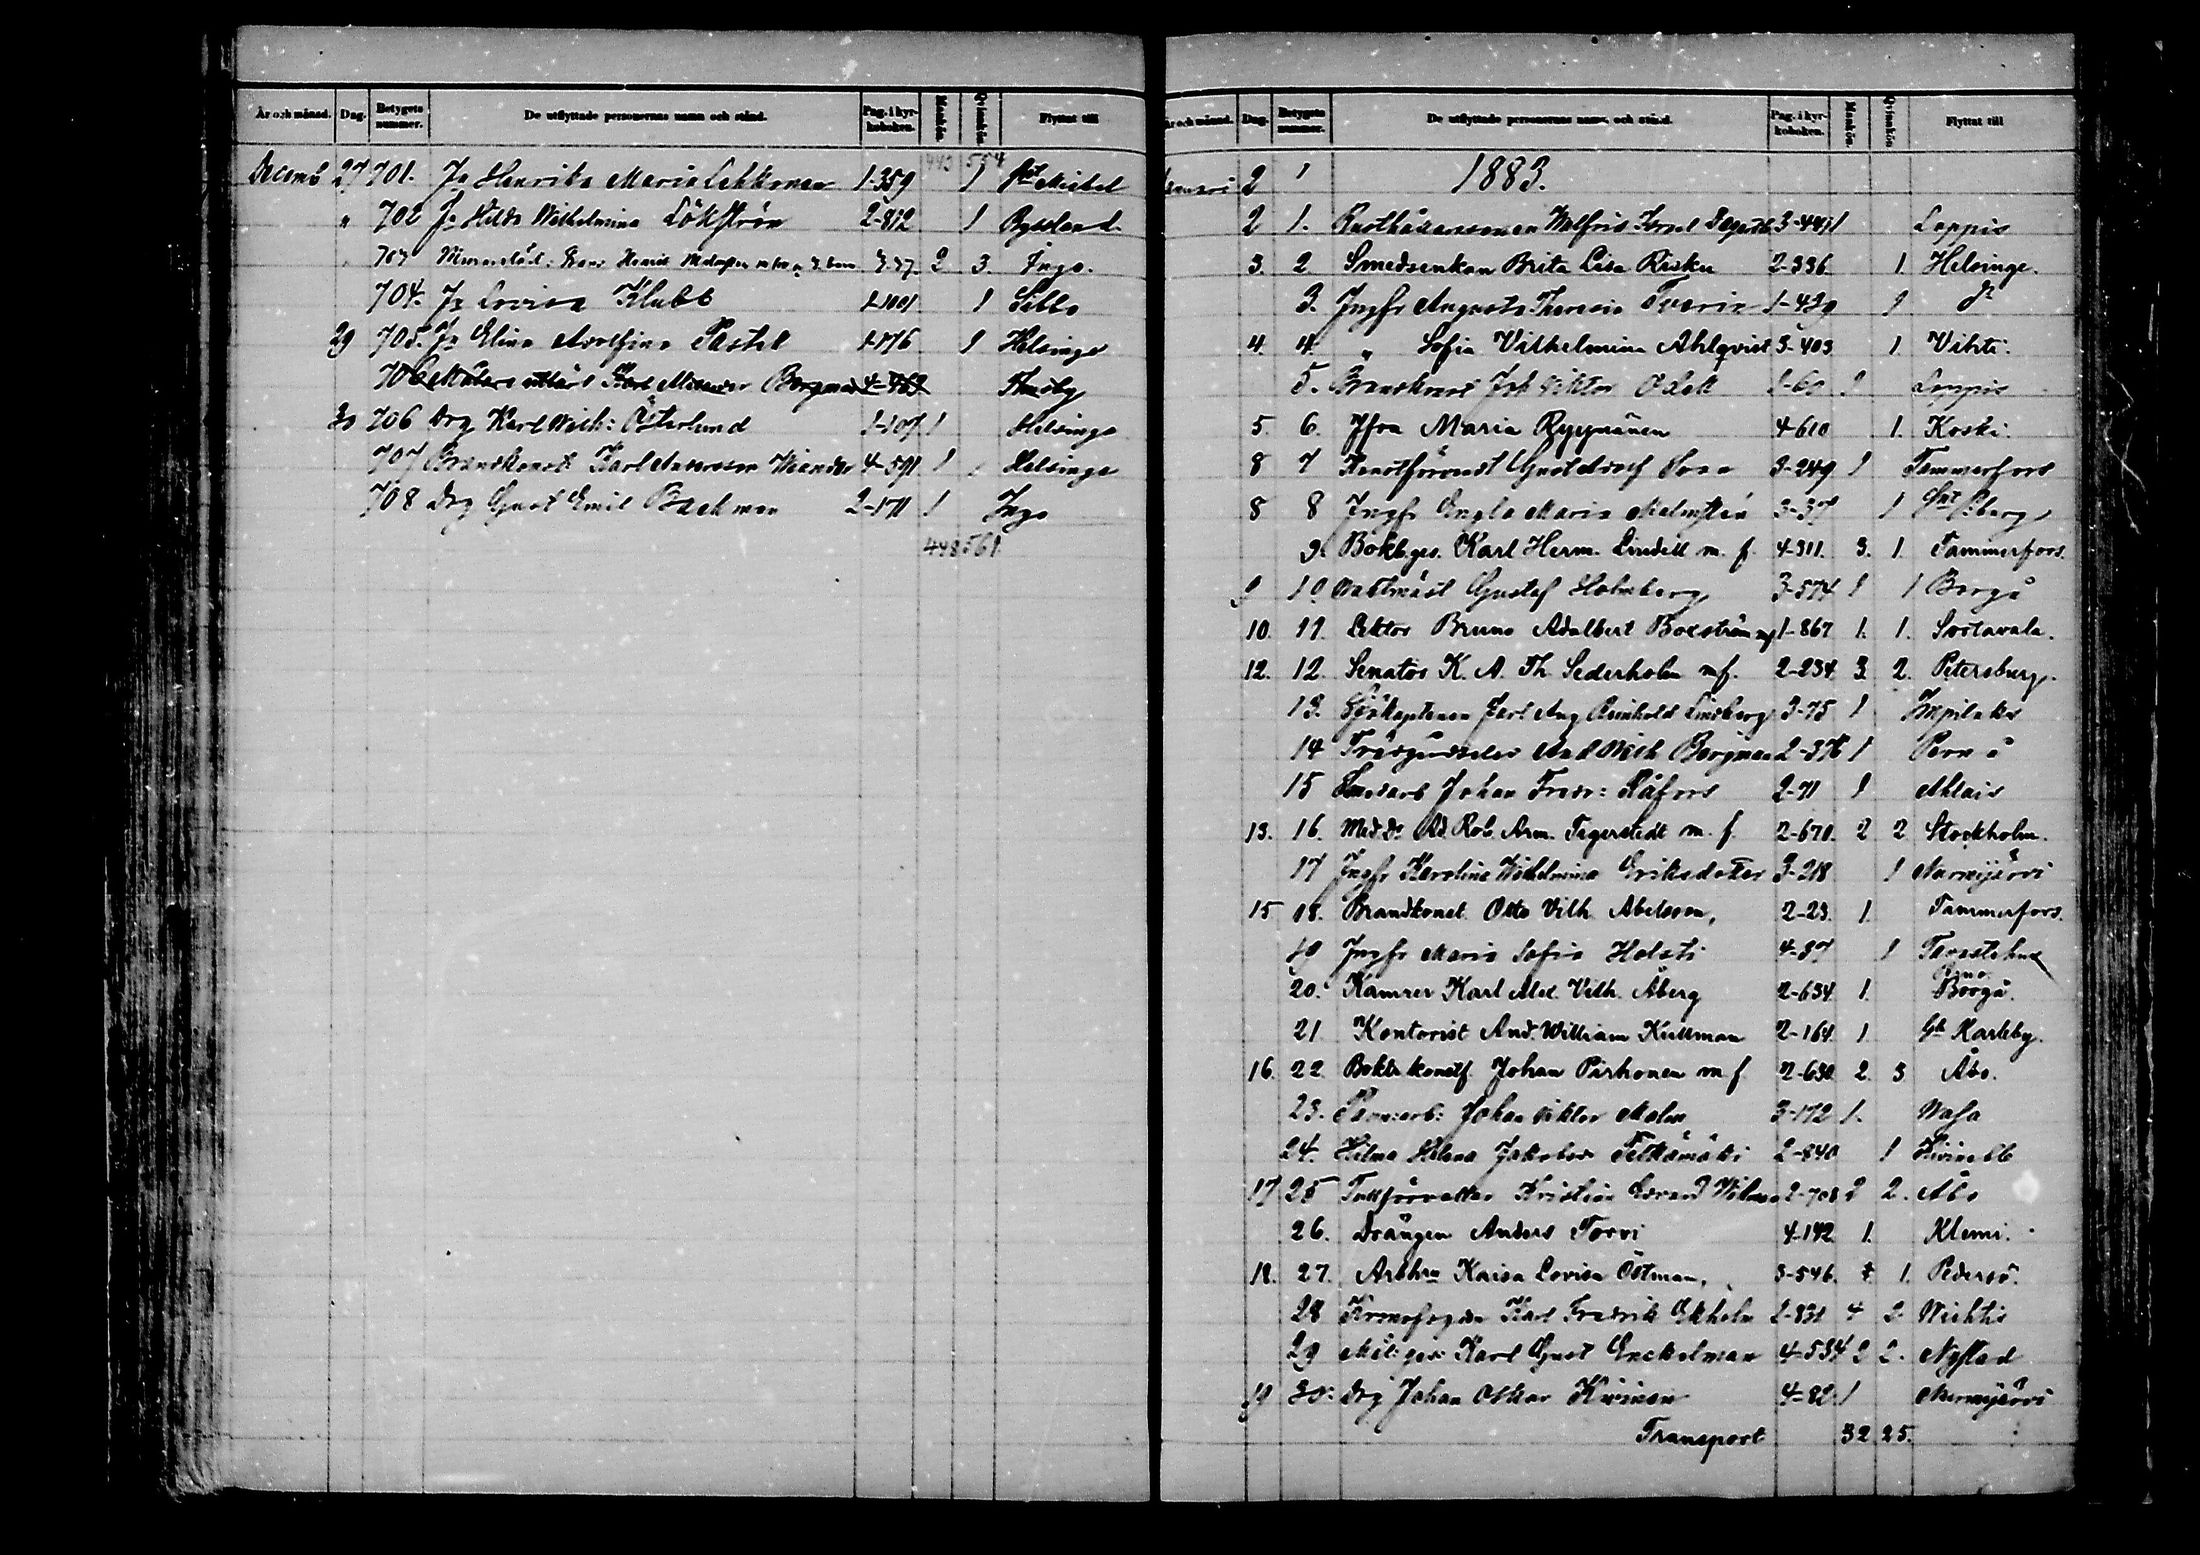 År och månad. Dag. Betygets nummer. De utflyttade personernas namn och stånd. Pag. i kyrkoboken. Mankön. Qvinkön. Flyttat till
443 554
Decemb 27 701. Ja Henrika Maria Lehkonen 1-359 1 St Michel
" 702 Ja Hilda Wilhelmina Lökström 2-812 1 Ryssland
703 3-37. 2 3 Ingo.
704. Ja Lovisa Klubb 1-1001 1 Sibbo
29 705. Ja Elina Adolfina Pastell 1-176 1 Helsinge
706 Karl Bergman 4-763
30 706 Drg Karl Wilh: Österlund 1-107 1 Helsinge
707 Brandkonst. Karl Andersson Wiander 4-591 1 Helsinge
708 Drg Gust Emil Backman 2-171 1 Ingo
448 561
År och månad. Dag. Betygets nummer. De utflyttade personernas namn, och stånd. Pag. i kyrkoboken. Mankön. Qvinkön. Flyttat till
Januari 2 1 1883.
2 1. Wolfrid 3-449 1 Loppis
3. 2 Smedsenkan Brita Lisa Risku 2-336 1. Helsinge.
3. Jngfr Augusta Theresia Tverin 1-439 1 do
4. 4. " Sofia Vilhelmina Ahlqvist 3-403 1 Vihti.
5. Brandkonst Joh Viktor 1-60 1 Loppis
5. 6. Jfrn Maria Ryynänen 4-610 1. Koski.
8 7 Konstförvandt Gust Adolf 3-249 1 Tammerfors
8 8 Jngfr Engla Maria Malmstén 3-37 1
9. Bokb.ges. Karl Herm. Lindell m. f. 4-311. 3. 1. Tammerfors.
9 10 Gustaf Holmberg 3-574 1 1 Borgå
10. 11. Lektor Bruno Adalbert Boxström mf 1-867 1. 1. Sortavala.
12. 12. Senator K. A. Th. Sederholm mf. 2-234 3 2. Petersburg.
13. Sjökaptenen Karl Aug Reinhold Lindberg 3-75 1 Impilaks
14 And Wilh Bergman 2-376 1 Pernå
15 Johan Fredr: Råfors 2-71 1 Ahlais
13. 16. Med.Dr Ad. Rob. Arm. Tigerstedt m. f. 2-670. 2 2 Stockholm.
17 Jngfr Karolina Wilhelmina Eriksdotter 3-218 1 Nurmijärvi
15 18. Brandkonst. Otto Vilh. Abelsson, 2-23. 1. Tammerfors.
19 Jngfr Maria Sofia Holsti 4-37 1 Tavastehus
20. Kamrer Karl Alex. Vilh. Åberg 2-654 1. Borgå.
21 Kontorist And. William Kullman 2-164 1. Gk Karleby.
16. 22 Boktr.konstf. Johan Pärhonen m f 2-630 2. 3 Åbo.
23. Johan Viktor Malm 3-172 1. Wasa
24. Hilma Helena Jakobsdr 2-840 1
17 25 Tullförvalter Kristian Edvard 2-708 2 2. Åbo
26. Drängen Anders Torvi 4-142 1. Klemi.
18. 27. Arbhru Kaisa Lovisa Östman, 3-546. 1. Pedersö.
28 Kronofogden Karl Fredrik Ekholm 2-831 4 2 Wichtis
29 Karl Gust Enckelman 4-534 2 2. Nystad
19 30. Drg Johan Oskar Kivinen 4-82 1 Nurmijärvi
Transport 32 25.